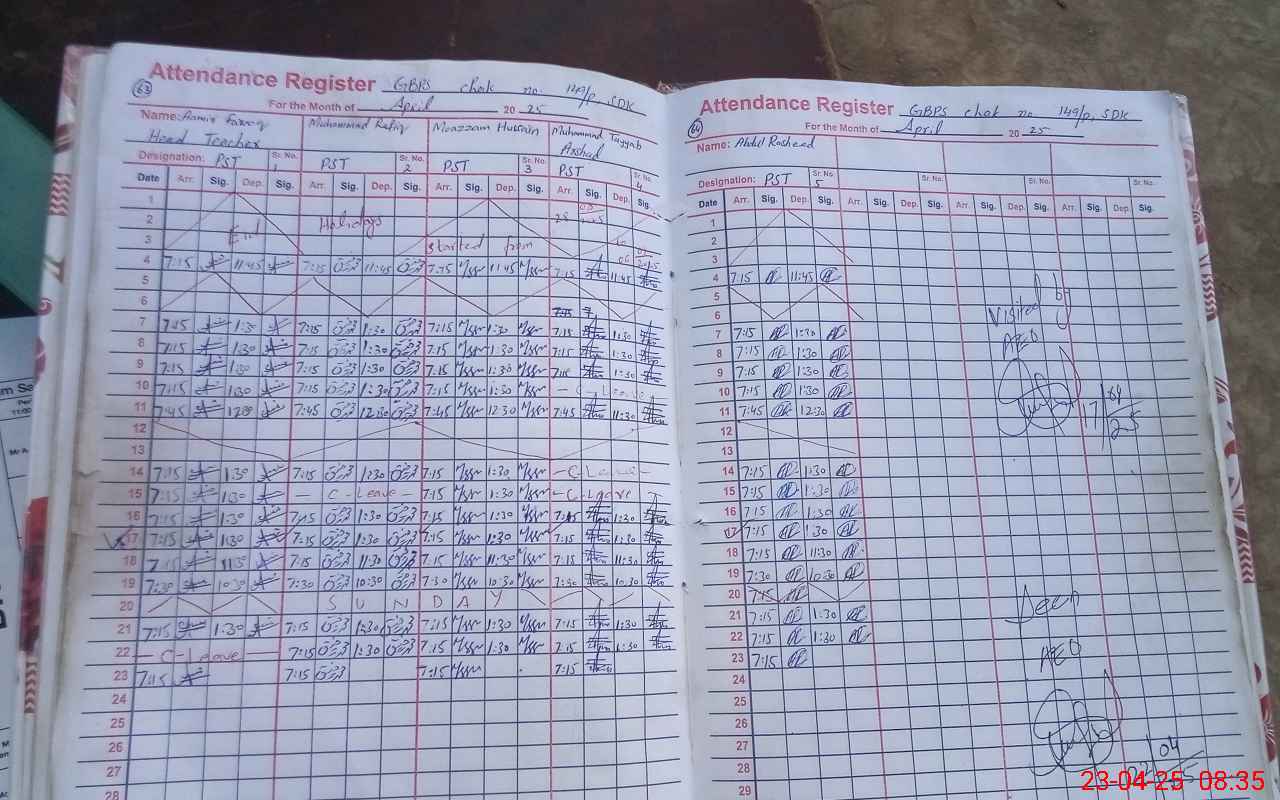 63
Attendance Register GBPS chak no. 149/P, SDK
For the Month of April 20 25
Name: Aamir Farooq Muhammad Rafiq Moazzam Hussain Muhammad Tayyab
Head Teacher Arshad
Designation: PST Sr. No. 1 PST Sr. No. 2 PST Sr. No. 3 PST Sr. No. 4
Date Arr. Sig. Dep. Sig. Arr. Sig. Dep. Sig. Arr. Sig. Dep. Sig. Arr. Sig. Dep. Sig.
1
2 Eid Holidays
3 started from
4 7:15 11:45 7:15 11:45 7:15 11:45 7:15 11:45
5
6
7 7:15 1:30 7:15 1:30 7:15 1:30 7:15 1:30
8 7:15 1:30 7:15 1:30 7:15 1:30 7:15 1:30
9 7:15 1:30 7:15 1:30 7:15 1:30 7:15 1:30
10 7:15 1:30 7:15 1:30 7:15 1:30 - C-Leave -
11 7:45 7:45 12:30 7:45 12:30 7:45 11:30
12
13
14 7:15 1:30 7:15 1:30 7:15 1:30 - C-Leave -
15 7:15 1:30 - C-Leave - 7:15 1:30 - C-Leave
16 7:15 1:30 7:15 1:30 7:15 1:30 7:15 1:30
17 7:15 1:30 7:15 1:30 7:15 1:30 7:15 1:30
18 7:15 11:30 7:15 11:30 7:15 11:30 7:15 11:30
19 7:30 10:30 7:30 10:30 7:30 10:30 7:30 10:30
20 S U N D A Y
21 7:15 1:30 7:15 1:30 7:15 1:30 7:15 1:30
22 - C-Leave - 7:15 1:30 7:15 1:30 7:15 1:30
23 7:15 7:15 7:15 7:15
24
25
26
27
28
Attendance Register GBPS chak no 149/P, SDK
64
For the Month of April 20 25
Name: Abdul Rasheed
Designation: PST Sr. No. 5 Sr. No. Sr. No. Sr. No.
Date Arr. Sig. Dep. Sig. Arr. Sig. Dep. Sig. Arr. Sig. Dep. Sig. Arr. Sig. Dep. Sig.
1
2
3
4 7:15 11:45
5
6
7 7:15 1:30
8 7:15 1:30
9 7:15 1:30
10 7:15 1:30
11 7:45 12:30
12
13
14 7:15 1:30
15 7:15 1:30
16 7:15 1:30
17 7:15 1:30
18 7:15 11:30
19 7:30 10:30
20 7:15
21 7:15 1:30
22 7:15 1:30
23 7:15
24
25
26
27
28
29
Visited by
AEO
17/04/25
Seen
AEO
22/04
23-04-25 08:35